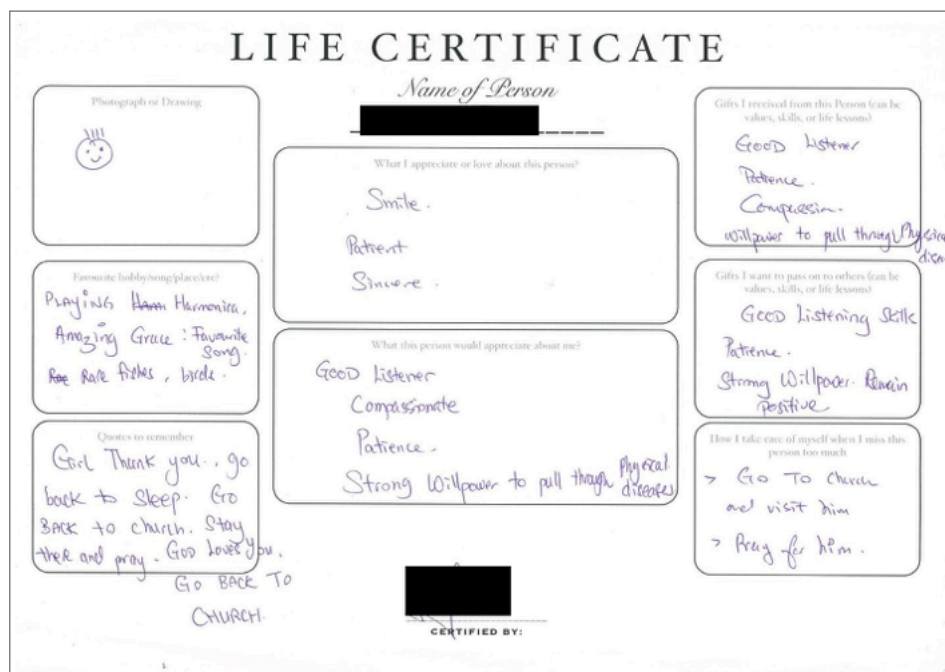 LIFE CERTIFICATE
Name of Person
Photograph or Drawing
Favourite hobby/song/place/etc?
PLAYING Harm Harmonica.
Amazing Grace : Favourite
song.
Rae Rare fishes, birds.
Quotes to remember
Girl Thank you.., go
back to sleep. GO
BACK to church. Stay
there and pray. GOD LOVES YOU.
GO BACK TO
CHURCH.
What I appreciate or love about this person?
Smile.
Patient
Sincere.
What this person would appreciate about me?
GOOD Listener
Compassionate
Patience.
Strong Willpower to pull through physical
diseases
CERTIFIED BY:
Gifts I received from this Person (can be
values, skills, or life lessons)
GOOD Listener
Patience.
Compassion.
Willpower to pull through Physical
Gifts I want to pass on to others (can be
values, skills, or life lessons)
GOOD Listening Skills
Patience.
Strong Willpower. Remain
Positive
How I take care of myself when I miss this
person too much
> GO TO Church
and visit him
> Pray for him.